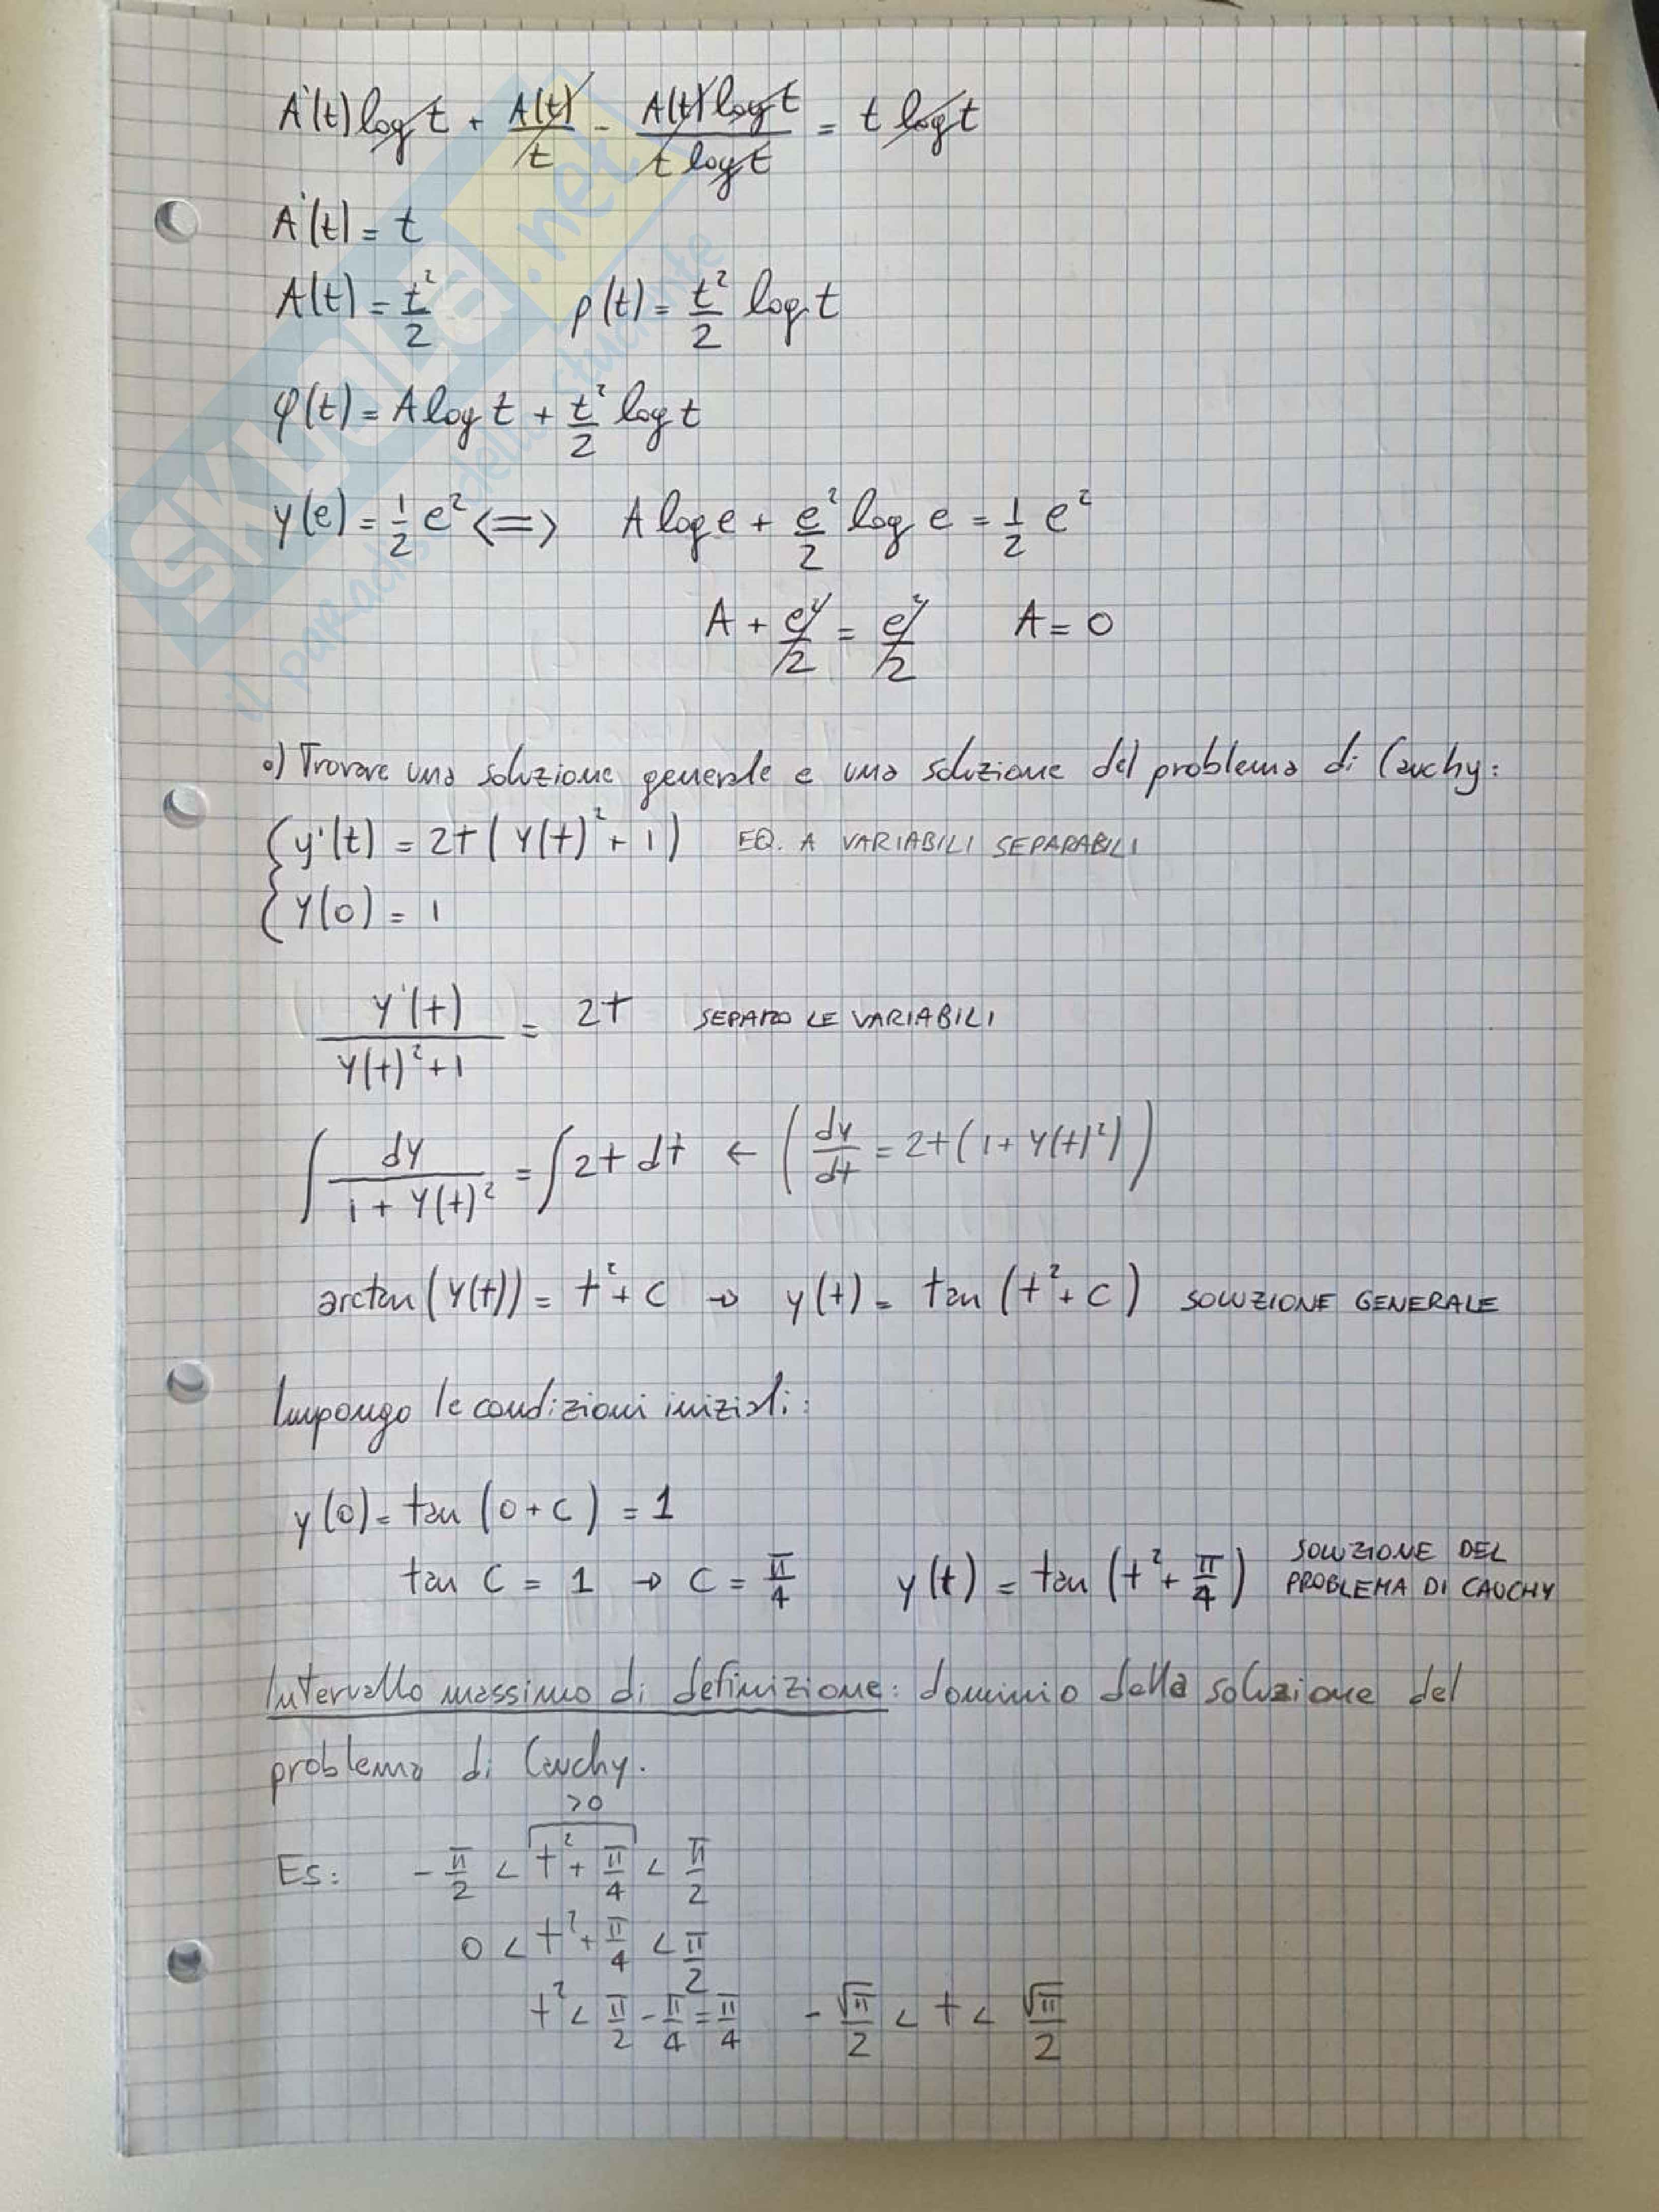 A'(t) log t + A(t)/t - A(t) log t / t log t = t log t
A'(t) = t
A(t) = t²/2   p(t) = t²/2 log t
φ(t) = A log t + t²/2 log t
y(e) = 1/2 e² <=> A log e + e²/2 log e = 1/2 e²
A + e²/2 = e²/2   A = 0
•) Trovare una soluzione generale e una soluzione del problema di Cauchy:
{ y'(t) = 2t ( y(t)² + 1 )   EQ. A VARIABILI SEPARABILI
{ y(0) = 1
y'(t) / y(t)² + 1 = 2t   SEPARO LE VARIABILI
∫ dy / 1 + y(t)² = ∫ 2t dt ← ( dy/dt = 2t ( 1 + y(t)² ) )
arctan (y(t)) = t² + c → y(t) = tan (t² + c)   SOLUZIONE GENERALE
Impongo le condizioni iniziali:
y(0) = tan (0 + c) = 1
tan c = 1 → c = π/4   y(t) = tan (t² + π/4)   SOLUZIONE DEL PROBLEMA DI CAUCHY
Intervallo massimo di definizione: dominio della soluzione del
problema di Cauchy.
>0
Es: - π/2 < t² + π/4 < π/2
0 < t² + π/4 < π/2
t² < π/2 - π/4 = π/4   - √π/2 < t < √π/2
SKUOLA.net
il paradiso dello studente